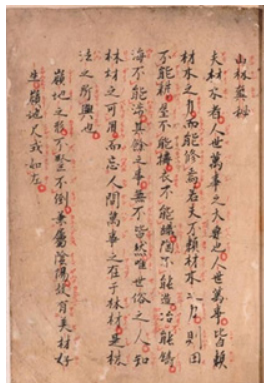 山林奧秘
夫材木者人世萬事之大寶也人世萬事皆賴
材木之有而能修為若夫不賴材木之力則田
不能耕堂不能搆衣不能織陶不能造冶不能鑄
海不能漁其餘之事無不皆然唯世俗之人知
林材之可用而忘人間萬事之在于林材是林
法之所興也
嶺地之移不堅不倒專屬陰陽故育美材好
嶺地尺式如左